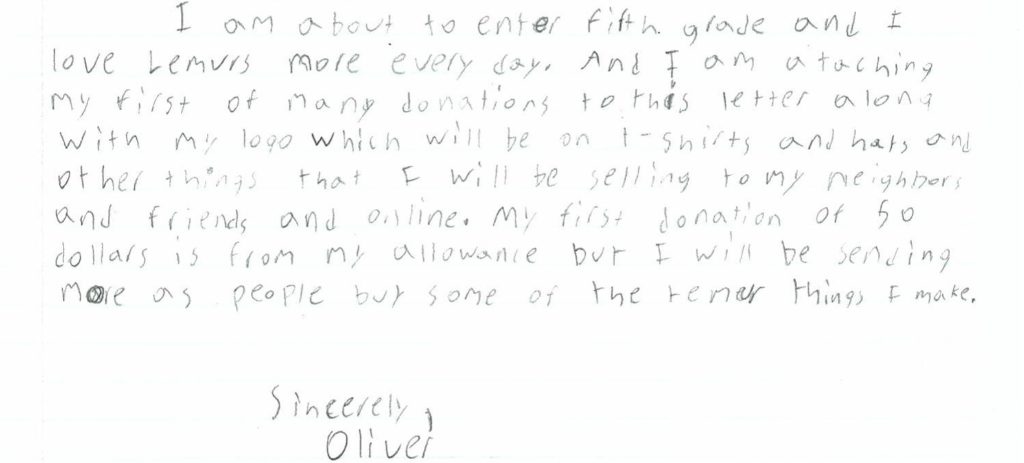 I am about to enter fifth grade and I
love Lemurs more every day. And I am ataching
my first of many donations to this letter along
with my logo which will be on t-shirts and hats and
other things that I will be selling to my neighbors
and friends and online. My first donation of 50
dollars is from my allowance but I will be sending
more as people buy some of the lemer things I make.
Sincerely,
Oliver